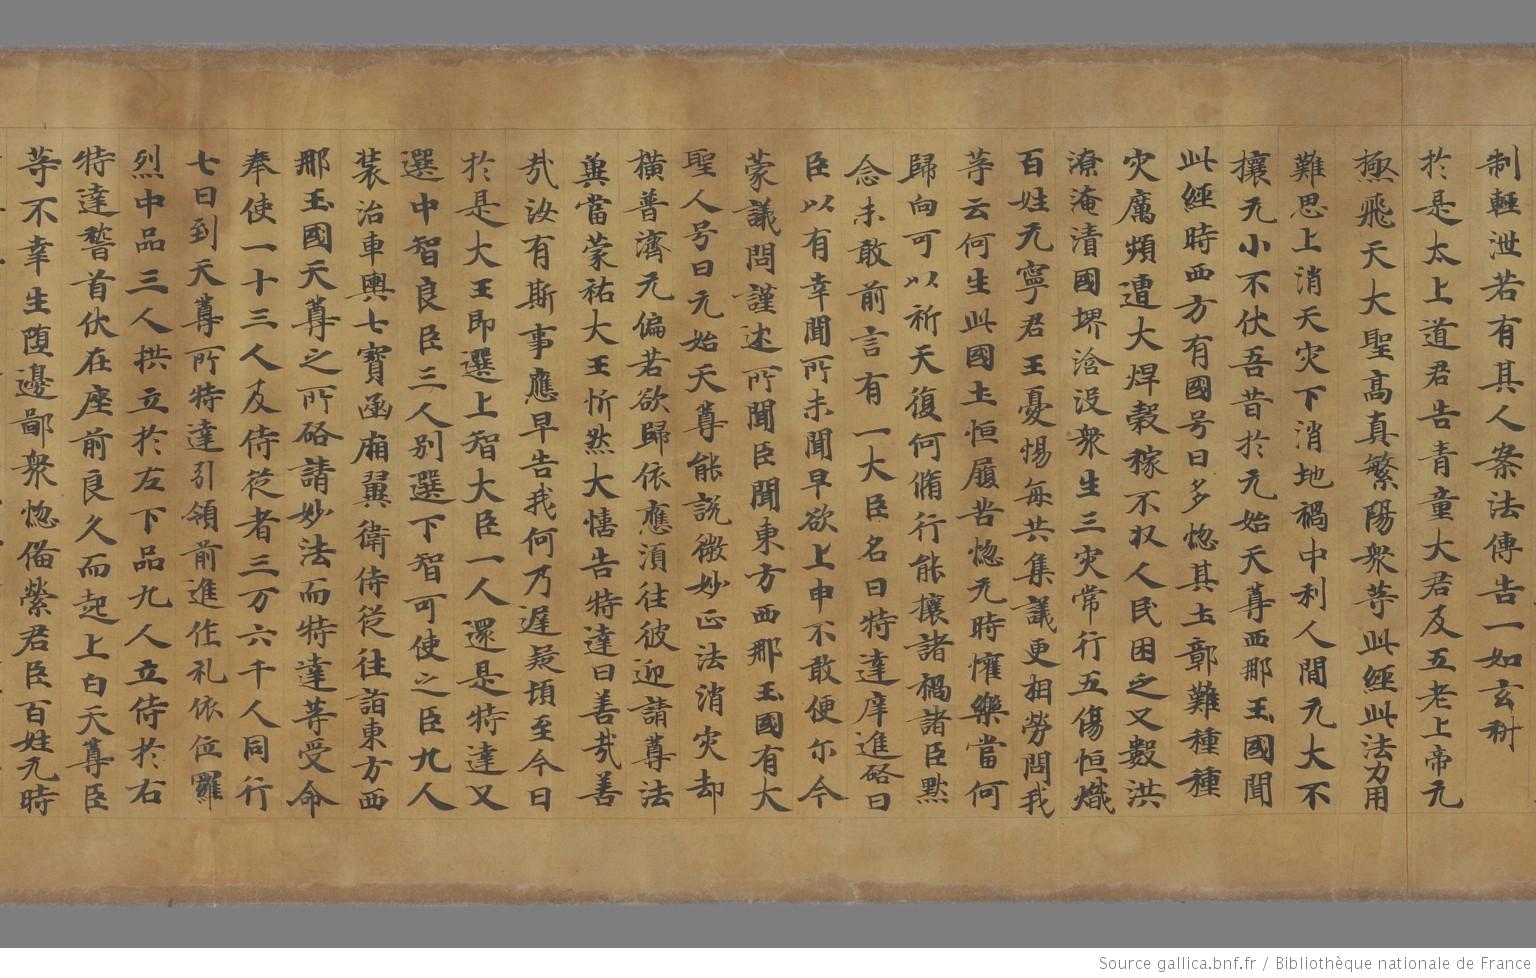 制輕泄若有其人案法傳告一如玄科
於是太上道君告青童大君及五老上帝元
極飛天大聖高真繁陽衆等此經此法力用
難思上消天灾下消地禍中利人間元大不
攘无小不伏吾昔於元始天尊西那玉國聞
此經時西方有國号曰多惚其土鄣難種種
灾厲頻遭大焊穀稼不収人民困乏又數洪
潦淹漬國堺淪没衆生三灾常行五傷恒熾
百姓无寧君王憂惕每共集議更相勞問我
等云何生此國土恒履苦惚元時懽樂當何
歸向可以祈天復何脩行能攘諸禍諸臣默
念未敢前言有一大臣名曰特達庠進啓曰
臣以有幸聞所未聞早欲上申不敢便尒今
蒙議問謹述所聞臣聞東方西那玉國有大
聖人号曰元始天尊能説微妙正法消灾却
横普濟无偏若欲歸依應湏往彼迎請尊法
兾當蒙祐大王忻然大憘告特達曰善㢤善
㢤汝有斯事應早告我何乃遲疑頃至今日
於是大王即選上智大臣一人還是特達又
選中智良臣三人别選下智可使之臣九人
装治車輿七寳函廂翼衛侍従往詣東方西
那玉國天尊之所啓請妙法而特達等受命
奉使一十三人及侍従者三万六千人同行
七日到天尊所特達引領前進作礼依位羅
烈中品三人拱立於左下品九人立侍於右
特達𥡴首伏在座前良久而起上白天尊臣
等不幸生墮邊鄙衆惚俻縈君臣百姓元時